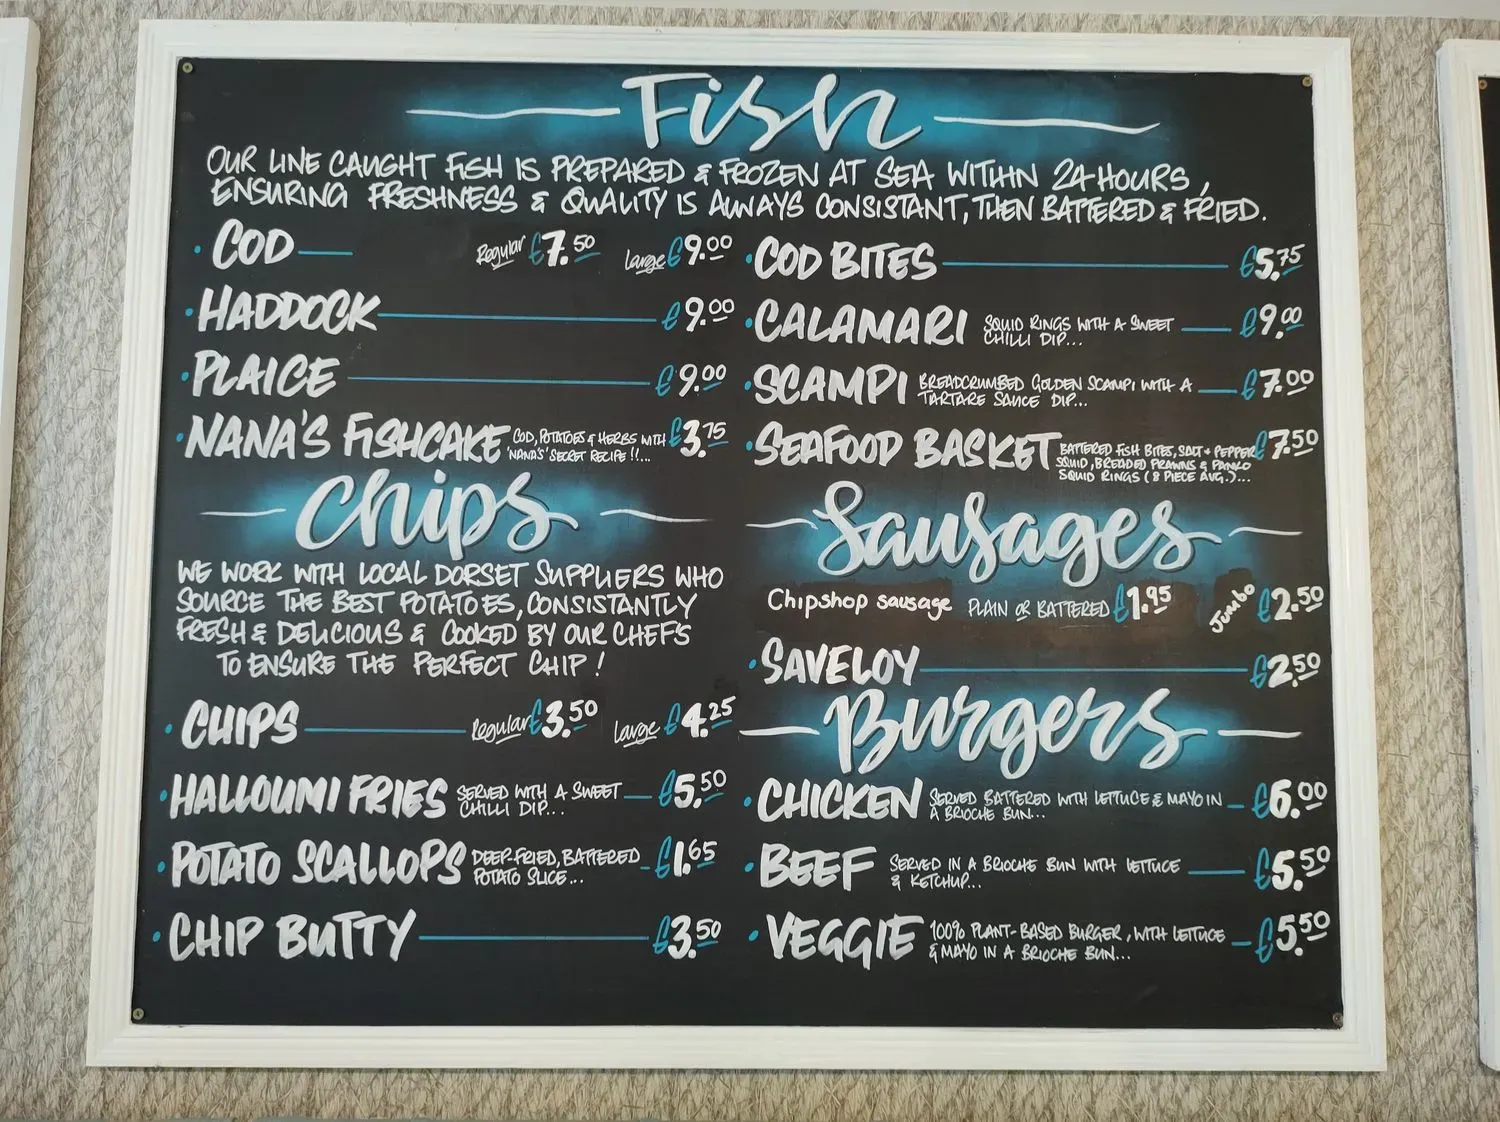 Fish
OUR LINE CAUGHT FISH IS PREPARED & FROZEN AT SEA WITHIN 24 HOURS,
ENSURING FRESHNESS & QUALITY IS ALWAYS CONSISTANT, THEN BATTERED & FRIED.
• COD Regular £7.50 Large £9.00
• HADDOCK £9.00
• PLAICE £9.00
• NANA'S FISHCAKE COD, POTATOES & HERBS WITH £3.75
'NANA'S' SECRET RECIPE !!...
• COD BITES £5.75
• CALAMARI SQUID RINGS WITH A SWEET £9.00
CHILLI DIP...
• SCAMPI BREADCRUMBED GOLDEN SCAMPI WITH A £7.00
TARTARE SAUCE DIP...
• SEAFOOD BASKET BATTERED FISH BITES, SALT + PEPPER £7.50
SQUID, BREADED PRAWNS & PANKO
SQUID RINGS (8 PIECE AVG.)...
Chips
WE WORK WITH LOCAL DORSET SUPPLIERS WHO
SOURCE THE BEST POTATOES, CONSISTANTLY
FRESH & DELICIOUS & COOKED BY OUR CHEFS
TO ENSURE THE PERFECT CHIP!
• CHIPS Regular £3.50 Large £4.25
• HALLOUMI FRIES SERVED WITH A SWEET £5.50
CHILLI DIP...
• POTATO SCALLOPS DEEP-FRIED, BATTERED £1.65
POTATO SLICE...
• CHIP BUTTY £3.50
Sausages
Chipshop sausage PLAIN OR BATTERED £1.95 Jumbo £2.50
• SAVELOY £2.50
Burgers
• CHICKEN SERVED BATTERED WITH LETTUCE & MAYO IN £6.00
A BRIOCHE BUN...
• BEEF SERVED IN A BRIOCHE BUN WITH LETTUCE £5.50
& KETCHUP...
• VEGGIE 100% PLANT-BASED BURGER, WITH LETTUCE £5.50
& MAYO IN A BRIOCHE BUN...